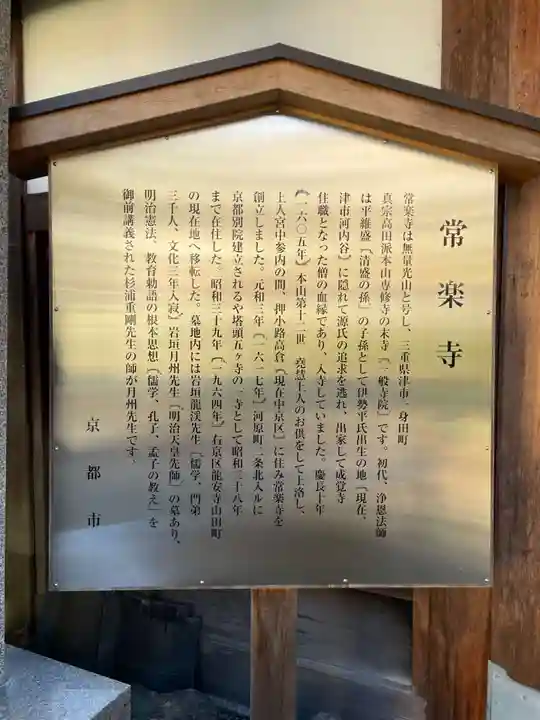 常楽寺
常楽寺は無量光山と号し、三重県津市・身田町
真宗高田派本山専修寺の末寺〔一般寺院〕です。初代、浄恩法師
は平維盛〔清盛の孫〕の子孫として伊勢平氏出生の地〔現在、
津市河内谷〕に隠れて源氏の追求を逃れ、出家して成覚寺
住職となった僧の血縁であり、入寺していました。慶長十年
〔一六〇五年〕本山第十二世 堯慧上人のお供をして上洛し、
上人宮中参内の間、押小路高倉〔現在中京区〕に住み常楽寺を
創立しました。元和三年〔一六一七年〕河原町二条北入ルに
京都別院建立されるや塔頭五ヶ寺の一寺として昭和三十八年
まで在住した。昭和三十九年〔一九六四年〕右京区龍安寺山田町
の現在地へ移転した。墓地内には岩垣龍渓先生〔儒学、門弟
三千人、文化三年入寂〕岩垣月州先生〔明治天皇先師〕の墓あり、
明治憲法、教育勅語の根本思想〔儒学、孔子、孟子の教え〕を
御前講義された杉浦重剛先生の師が月州先生です。
京都市